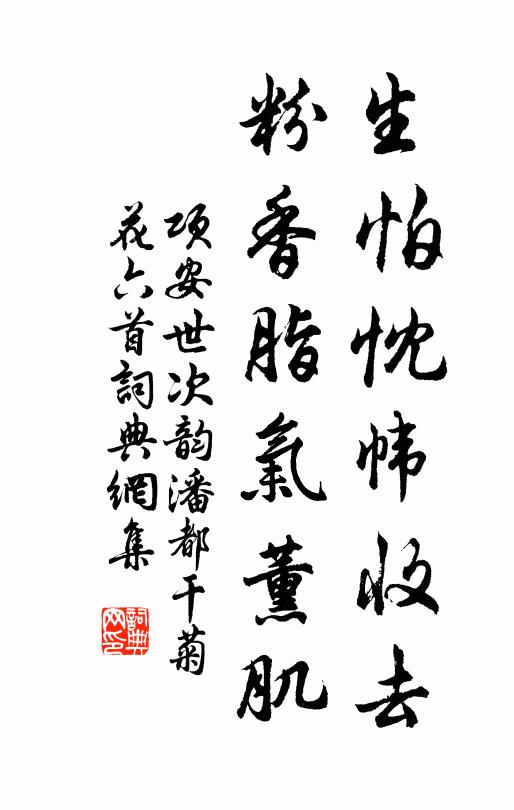 生怕忱幃收去
粉香脂氣薰肌
項安世次韵潘都干菊
花六首詞典網集
詞典网印